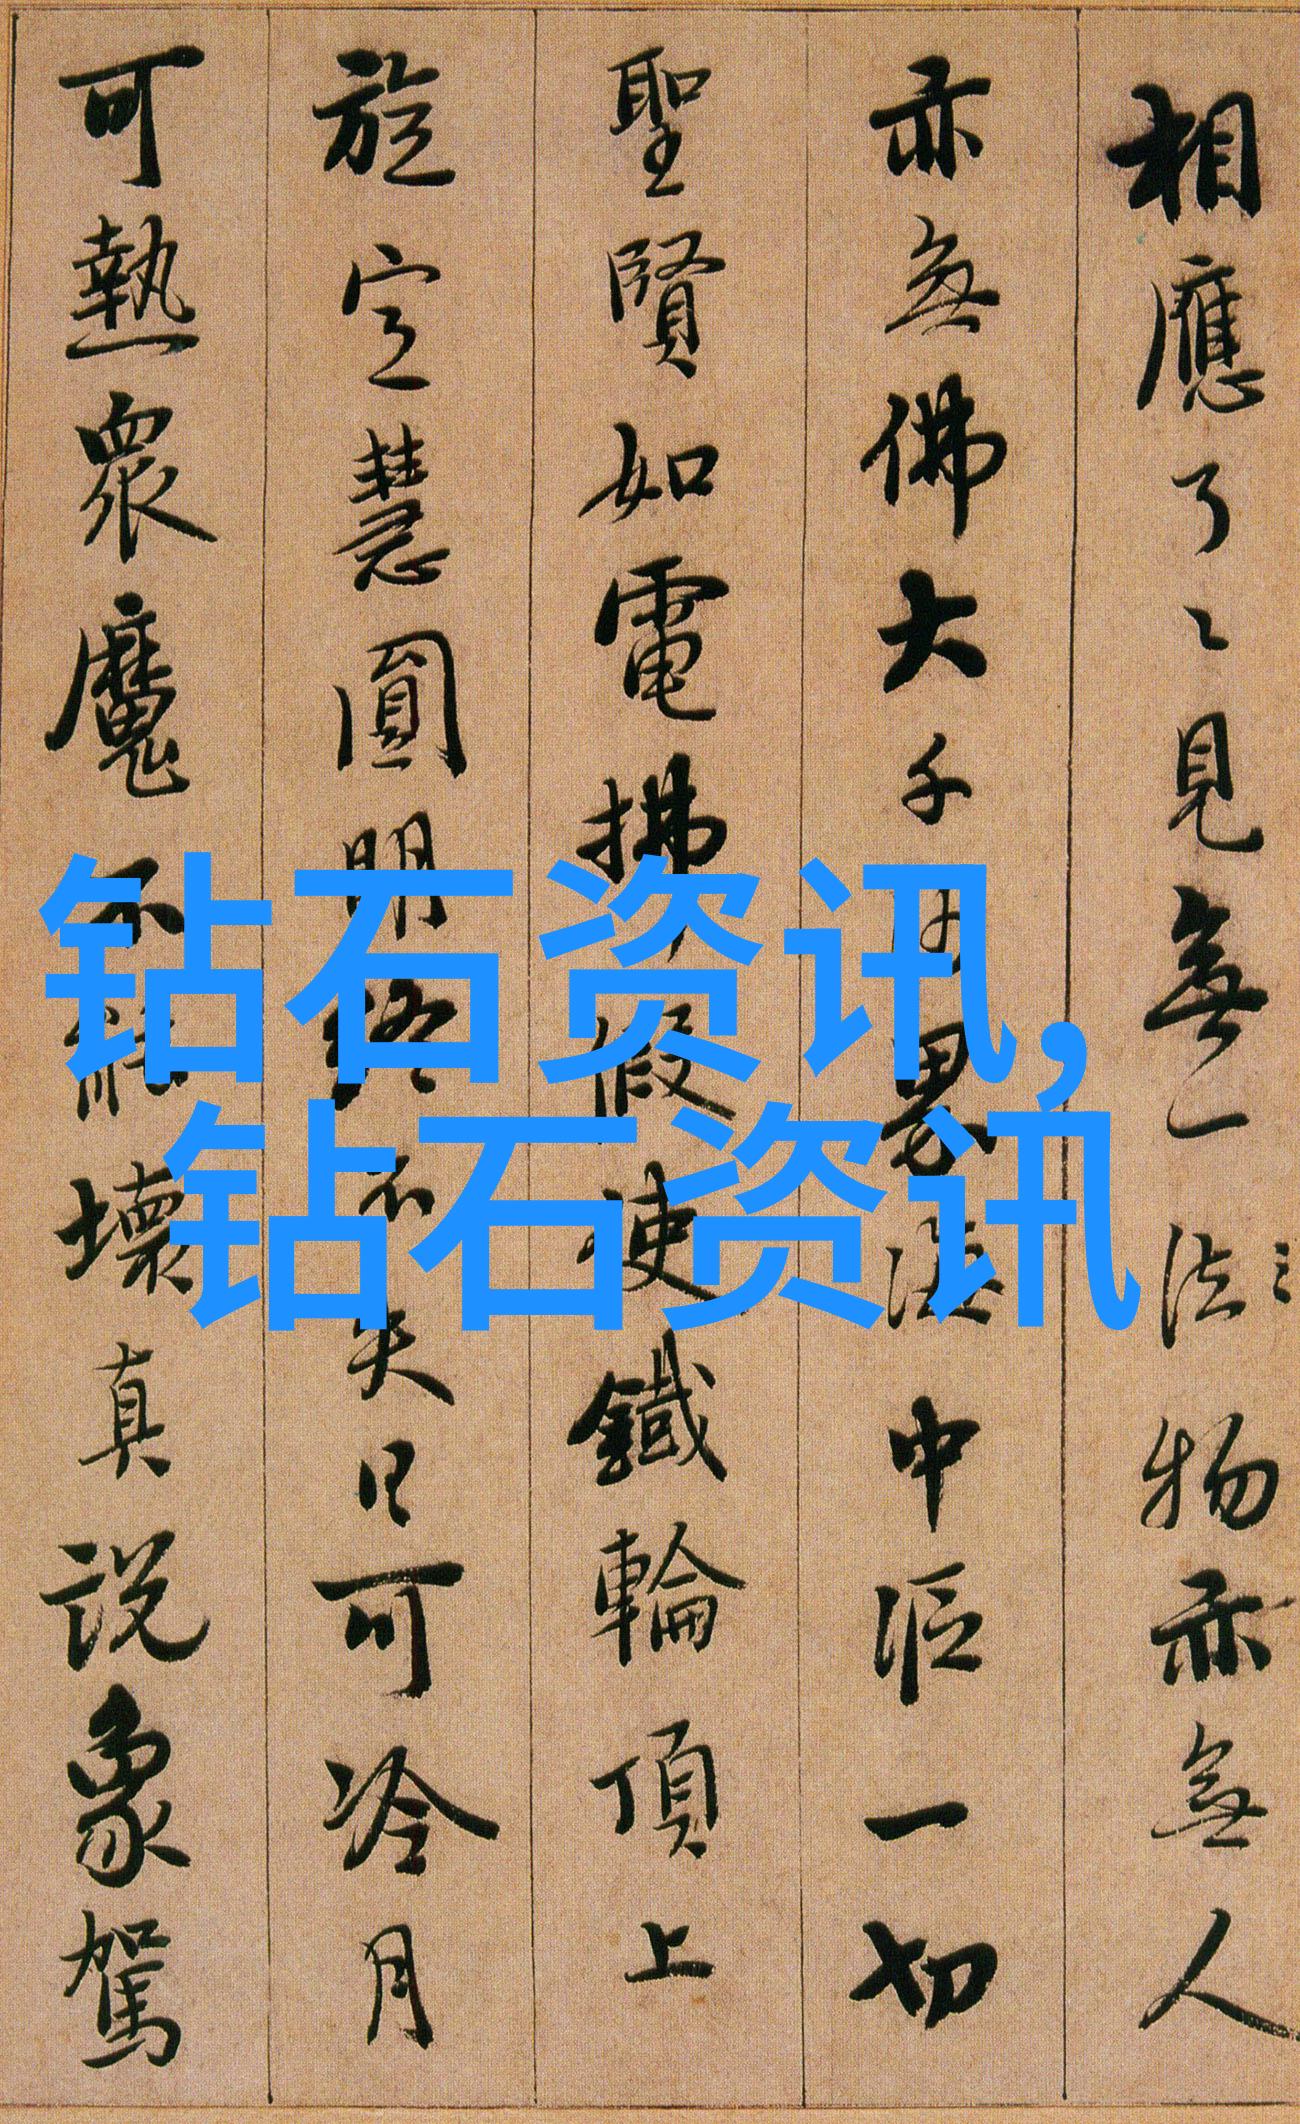 相應了〻見無一法物亦無人
亦無佛大千沙界海中漚一切
聖賢如電拂假使鐵輪頂上
旋定慧圓明終不失日可冷月
可熱眾魔不能壞真說象駕
钻石资讯,
钻石资讯